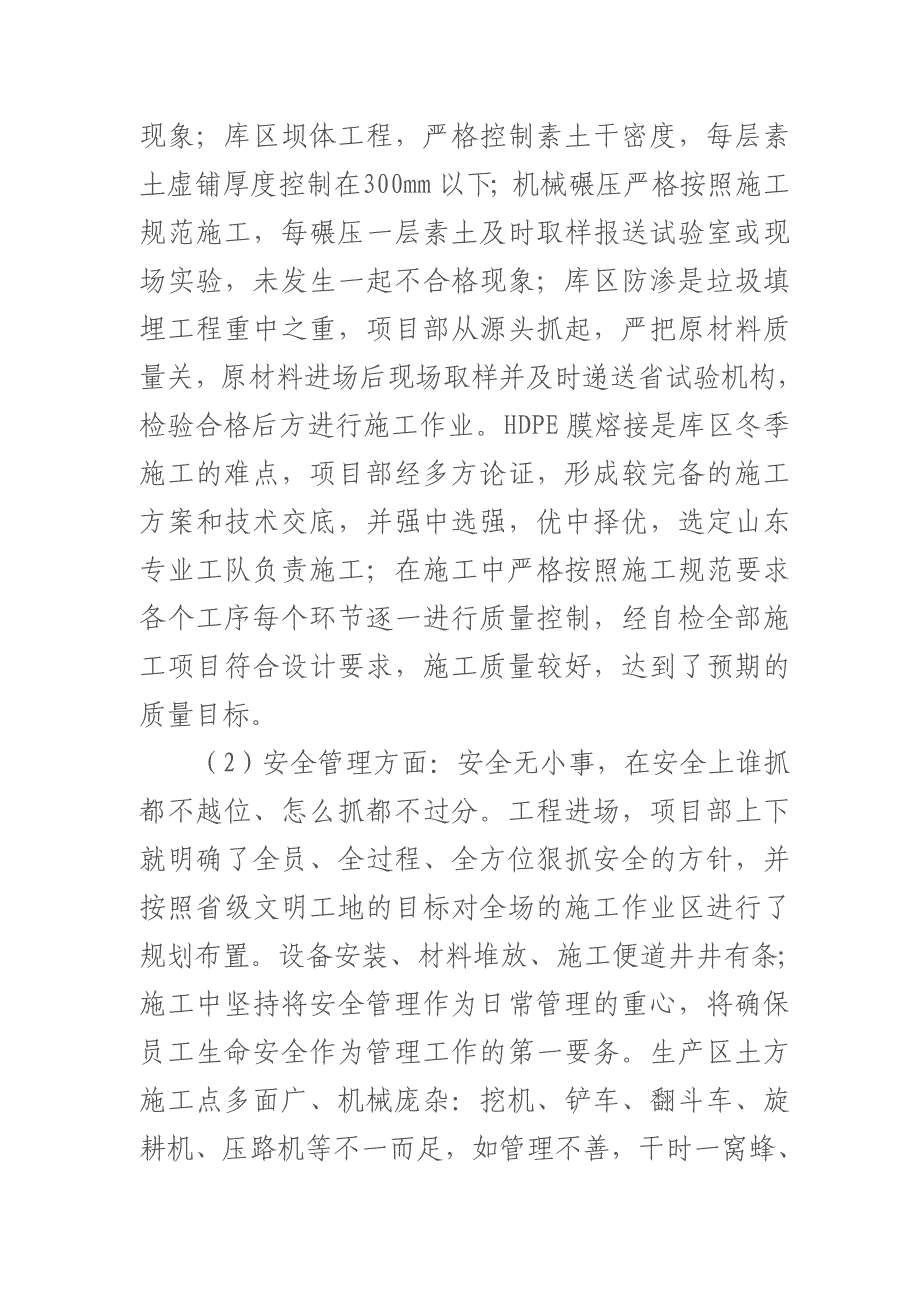 现象；库区坝体工程，严格控制素土干密度，每层素
土虚铺厚度控制在300mm以下；机械碾压严格按照施工
规范施工，每碾压一层素土及时取样报送试验室或现
场实验，未发生一起不合格现象；库区防渗是垃圾填
埋工程重中之重，项目部从源头抓起，严把原材料质
量关，原材料进场后现场取样并及时递送省试验机构，
检验合格后方进行施工作业。HDPE膜熔接是库区冬季
施工的难点，项目部经多方论证，形成较完备的施工
方案和技术交底，并强中选强，优中择优，选定山东
专业工队负责施工；在施工中严格按照施工规范要求
各个工序每个环节逐一进行质量控制，经自检全部施
工项目符合设计要求，施工质量较好，达到了预期的
质量目标。
（2）安全管理方面：安全无小事，在安全上谁抓
都不越位、怎么抓都不过分。工程进场，项目部上下
就明确了全员、全过程、全方位狠抓安全的方针，并
按照省级文明工地的目标对全场的施工作业区进行了
规划布置。设备安装、材料堆放、施工便道井井有条；
施工中坚持将安全管理作为日常管理的重心，将确保
员工生命安全作为管理工作的第一要务。生产区土方
施工点多面广、机械庞杂：挖机、铲车、翻斗车、旋
耕机、压路机等不一而足，如管理不善，干时一窝蜂、